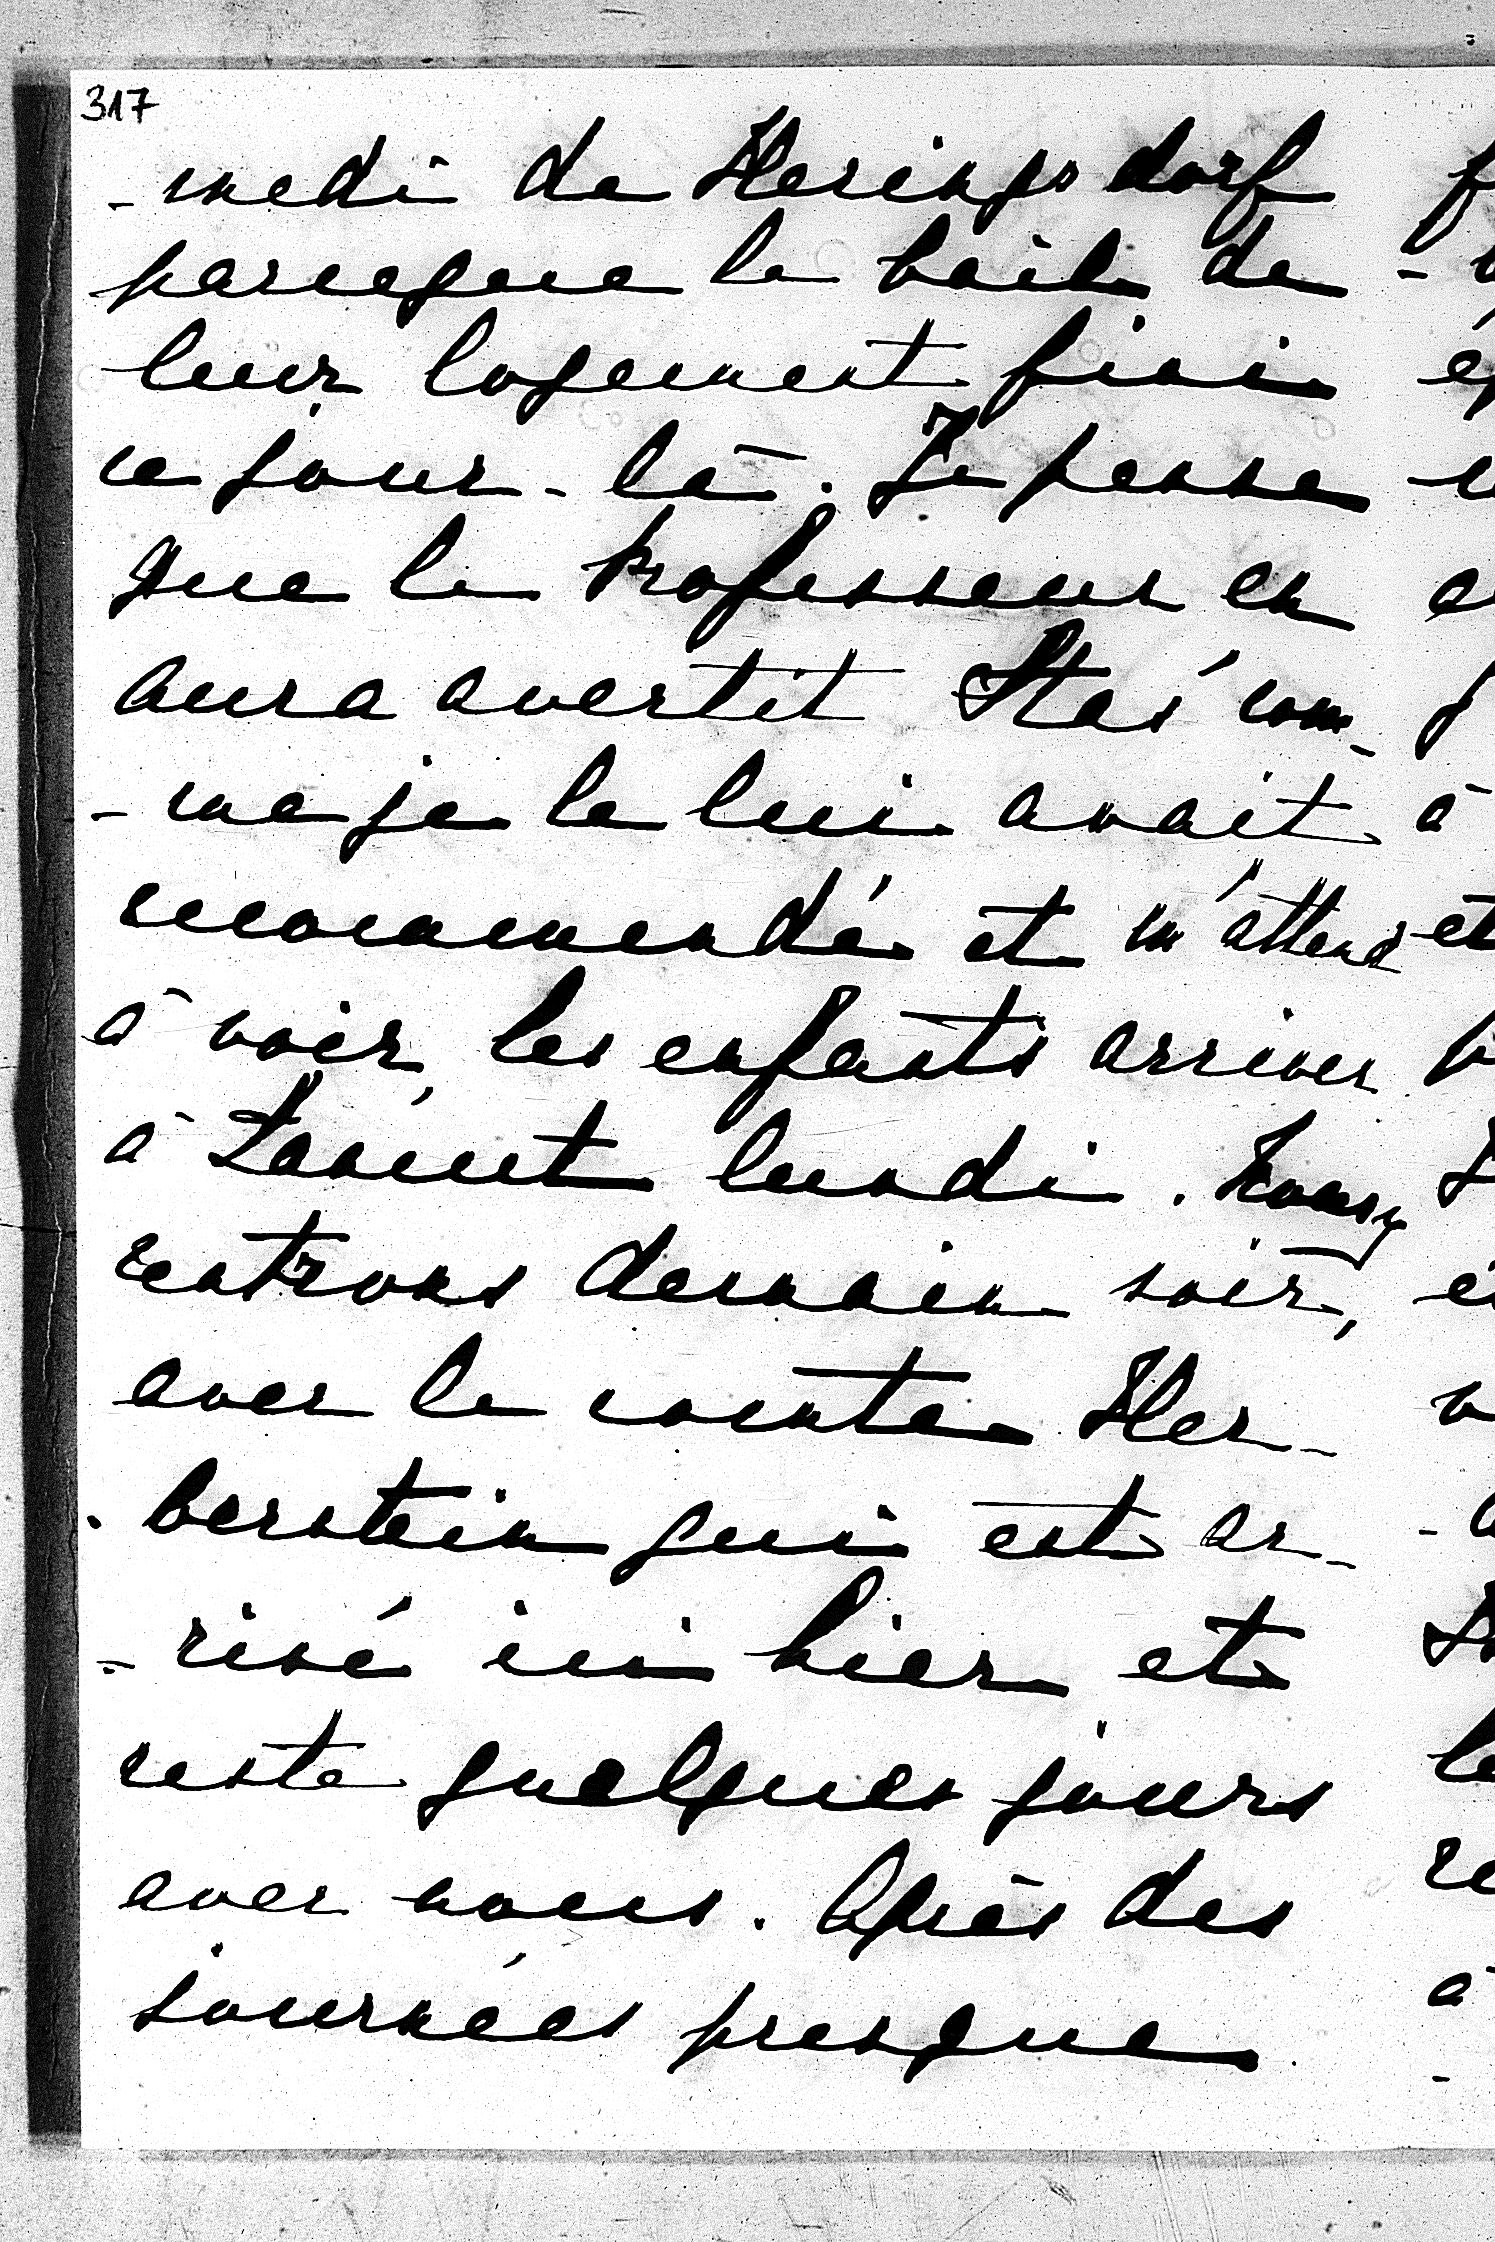 317
-medi de Heringsdorf
parceque le bail de
leur logement finit
ce jour-là. Je pense
que le professeur en
aura avertit Staś com-
-me je le lui avait
recommandé et m'attend
à voir les enfants arriver
à Łańcut lundi. Nous y
rentrons demain soir,
avec le comte Her-
berstein qui est ar-
-rivé ici hier et
reste quelques jours
avec nous. Après des
journées presque